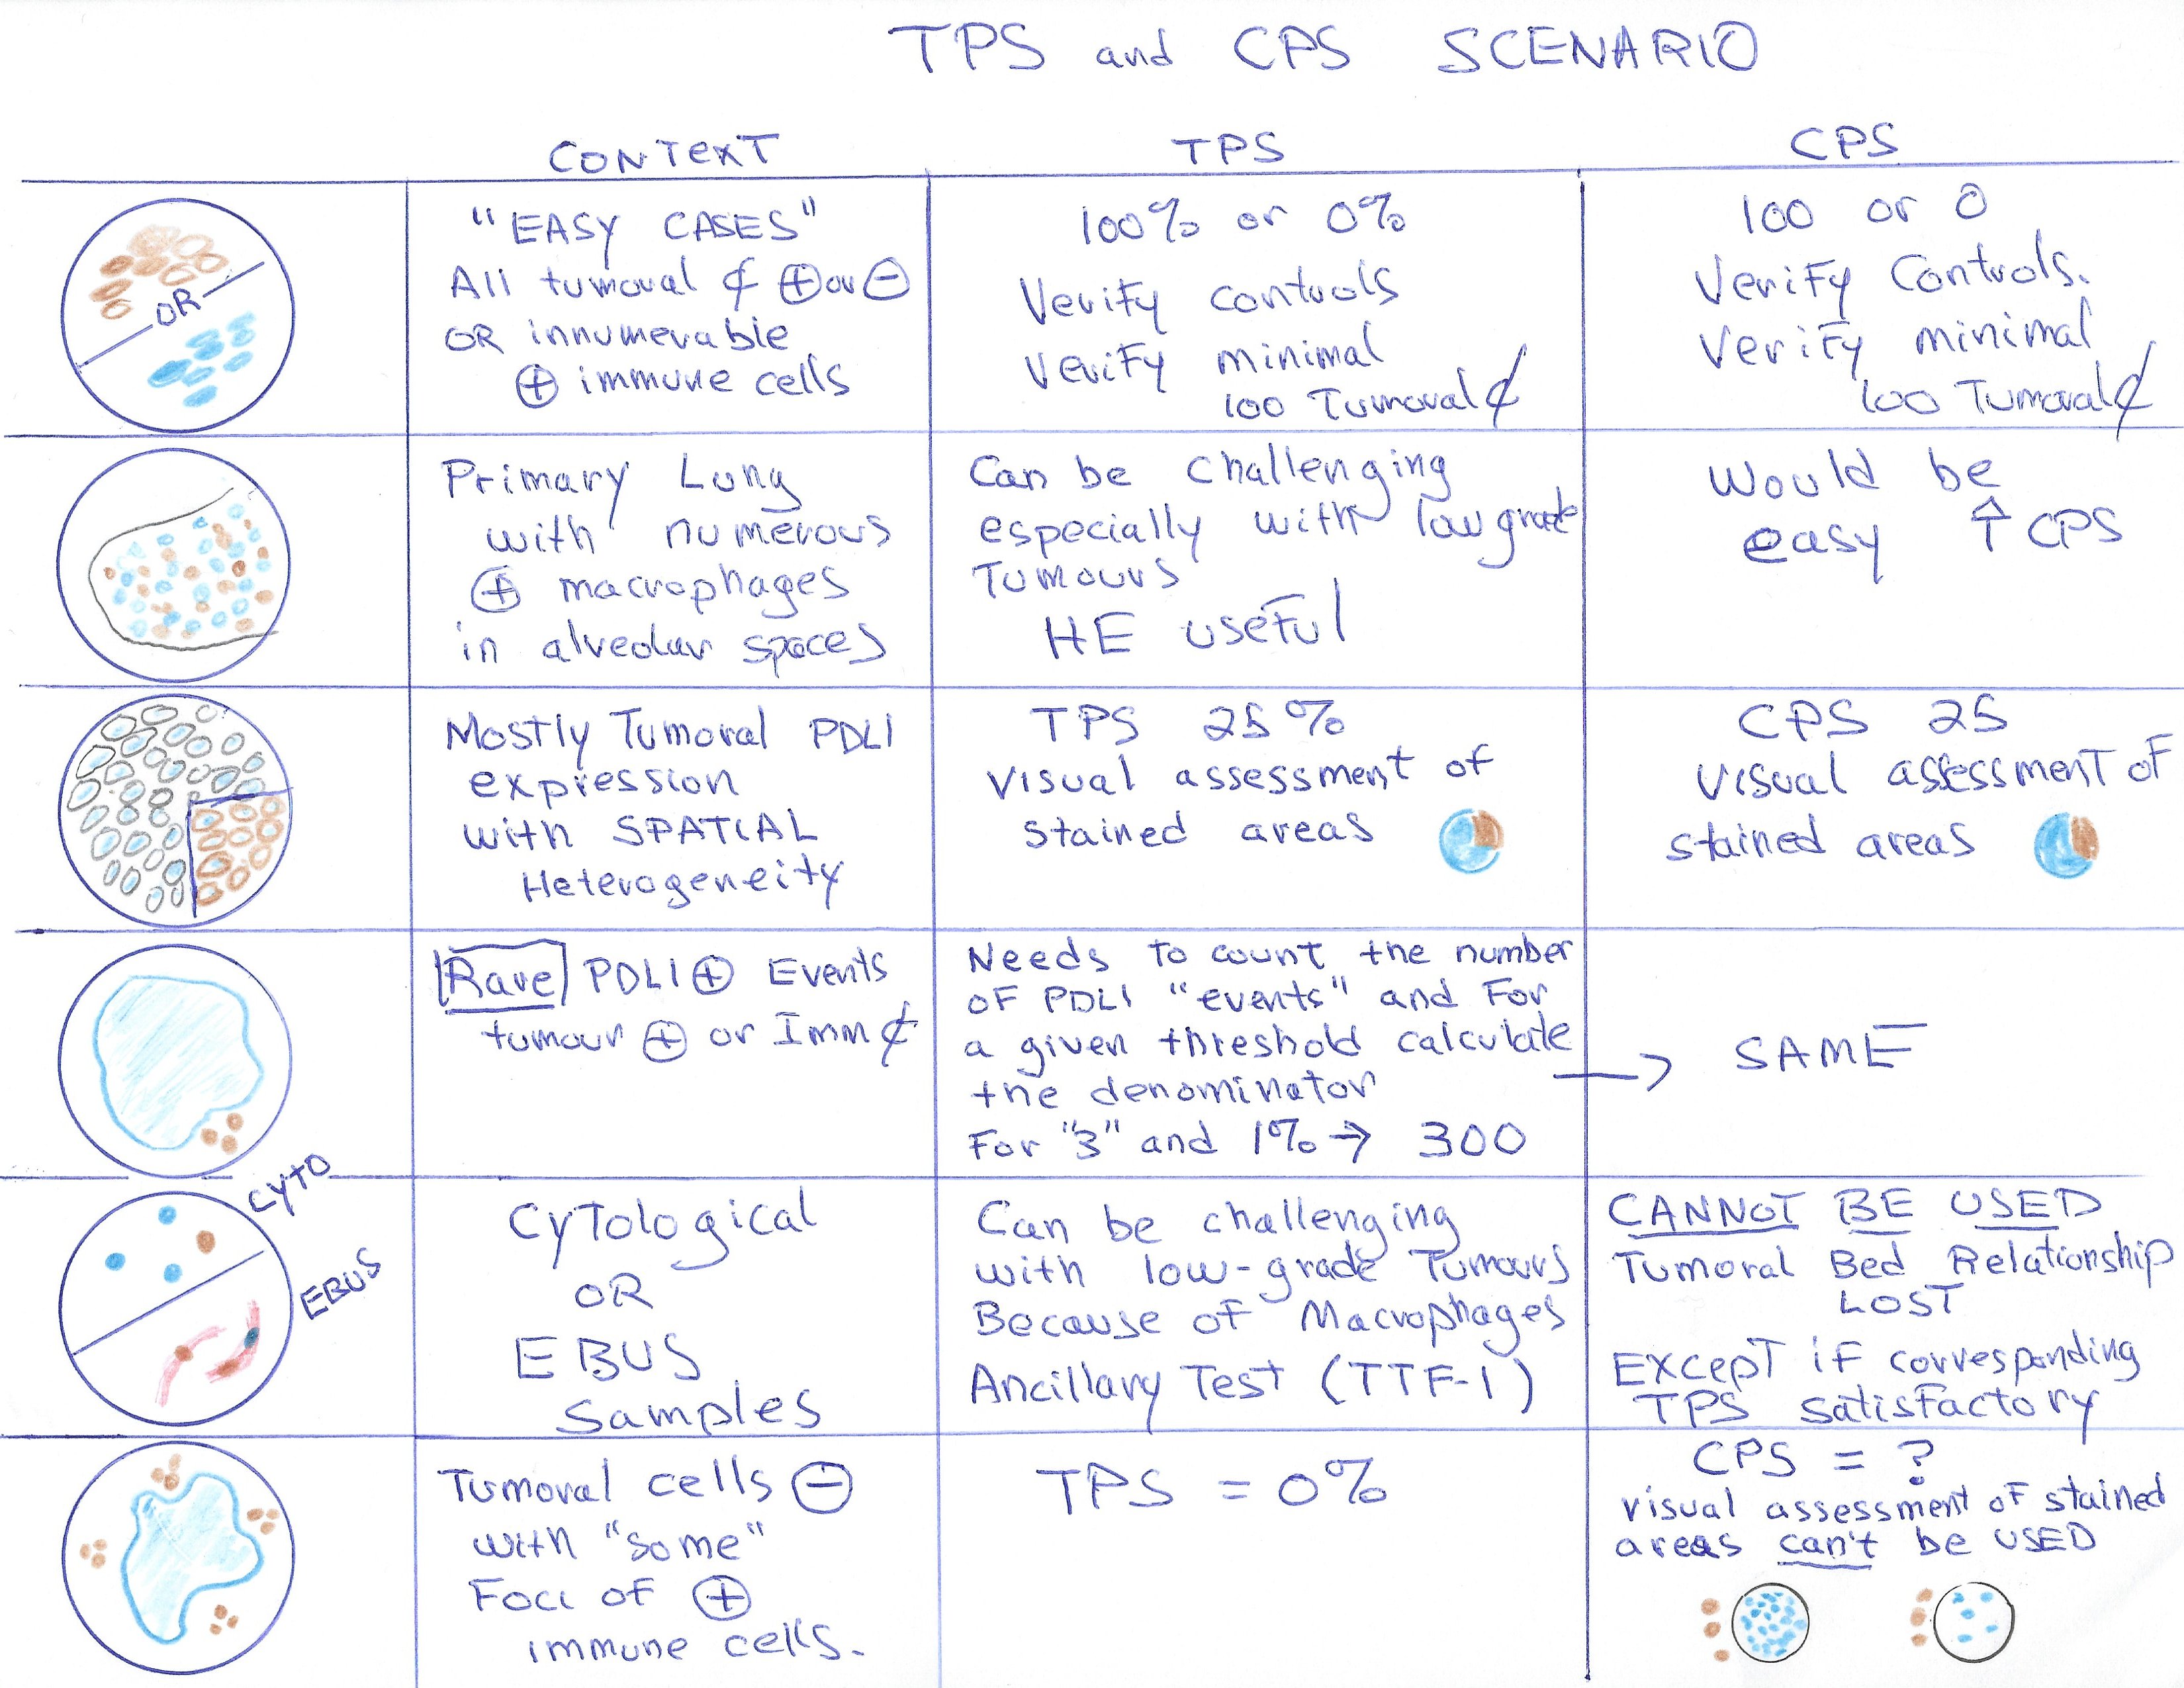 TPS and CPS SCENARIO
CONTEXT
TPS
CPS
OR
"EASY CASES"
All tumoral ¢ ⊕ or ⊖
OR innumerable
⊕ immune cells
100% or 0%
Verify controls
Verify minimal
100 Tumoral ¢
100 or 0
Verify Controls.
Verify minimal
100 Tumoral ¢
Primary Lung
with numerous
⊕ macrophages
in alveolar spaces
Can be challenging
especially with low grade
Tumours
HE useful
Would be
easy ↑ CPS
Mostly Tumoral PDL1
expression
with SPATIAL
Heterogeneity
TPS 25%
Visual assessment of
stained areas
CPS 25
Visual assessment of
stained areas
Rare PDL1 ⊕ Events
tumour ⊕ or Imm ¢
Needs to count the number
of PDL1 "events" and For
a given threshold calculate
the denominator
For "3" and 1% → 300
→ SAME
CYTO
EBUS
Cytological
OR
EBUS
Samples
Can be challenging
with low-grade Tumours
Because of Macrophages
Ancillary Test (TTF-1)
CANNOT BE USED
Tumoral Bed Relationship
LOST
EXCEPT if corresponding
TPS satisfactory
Tumoral cells ⊖
with "some"
Foci of ⊕
immune cells.
TPS = 0%
CPS = ?
visual assessment of stained
areas can't be USED